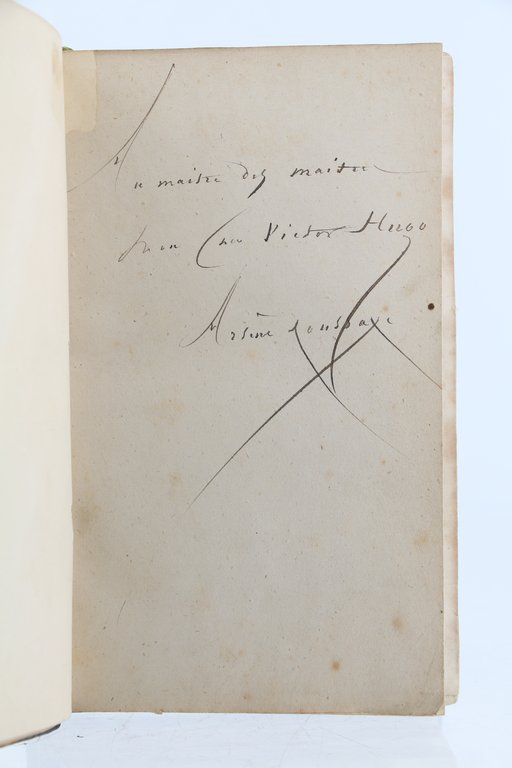 Au maitre des maitre
mon cher Victor Hugo
Arsène Houssaye